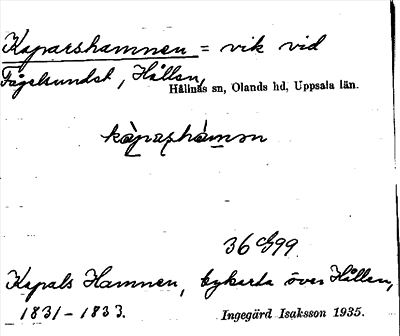 Kaparshamnen = vik vid
Fågelsundet, Hållen,
Hållnäs sn, Olands hd, Uppsala län.
kàparhámǝn
36 C 99
Kapals Hamnen, bykarta över Hållen,
1831–1833.
Ingegärd Isaksson 1935.